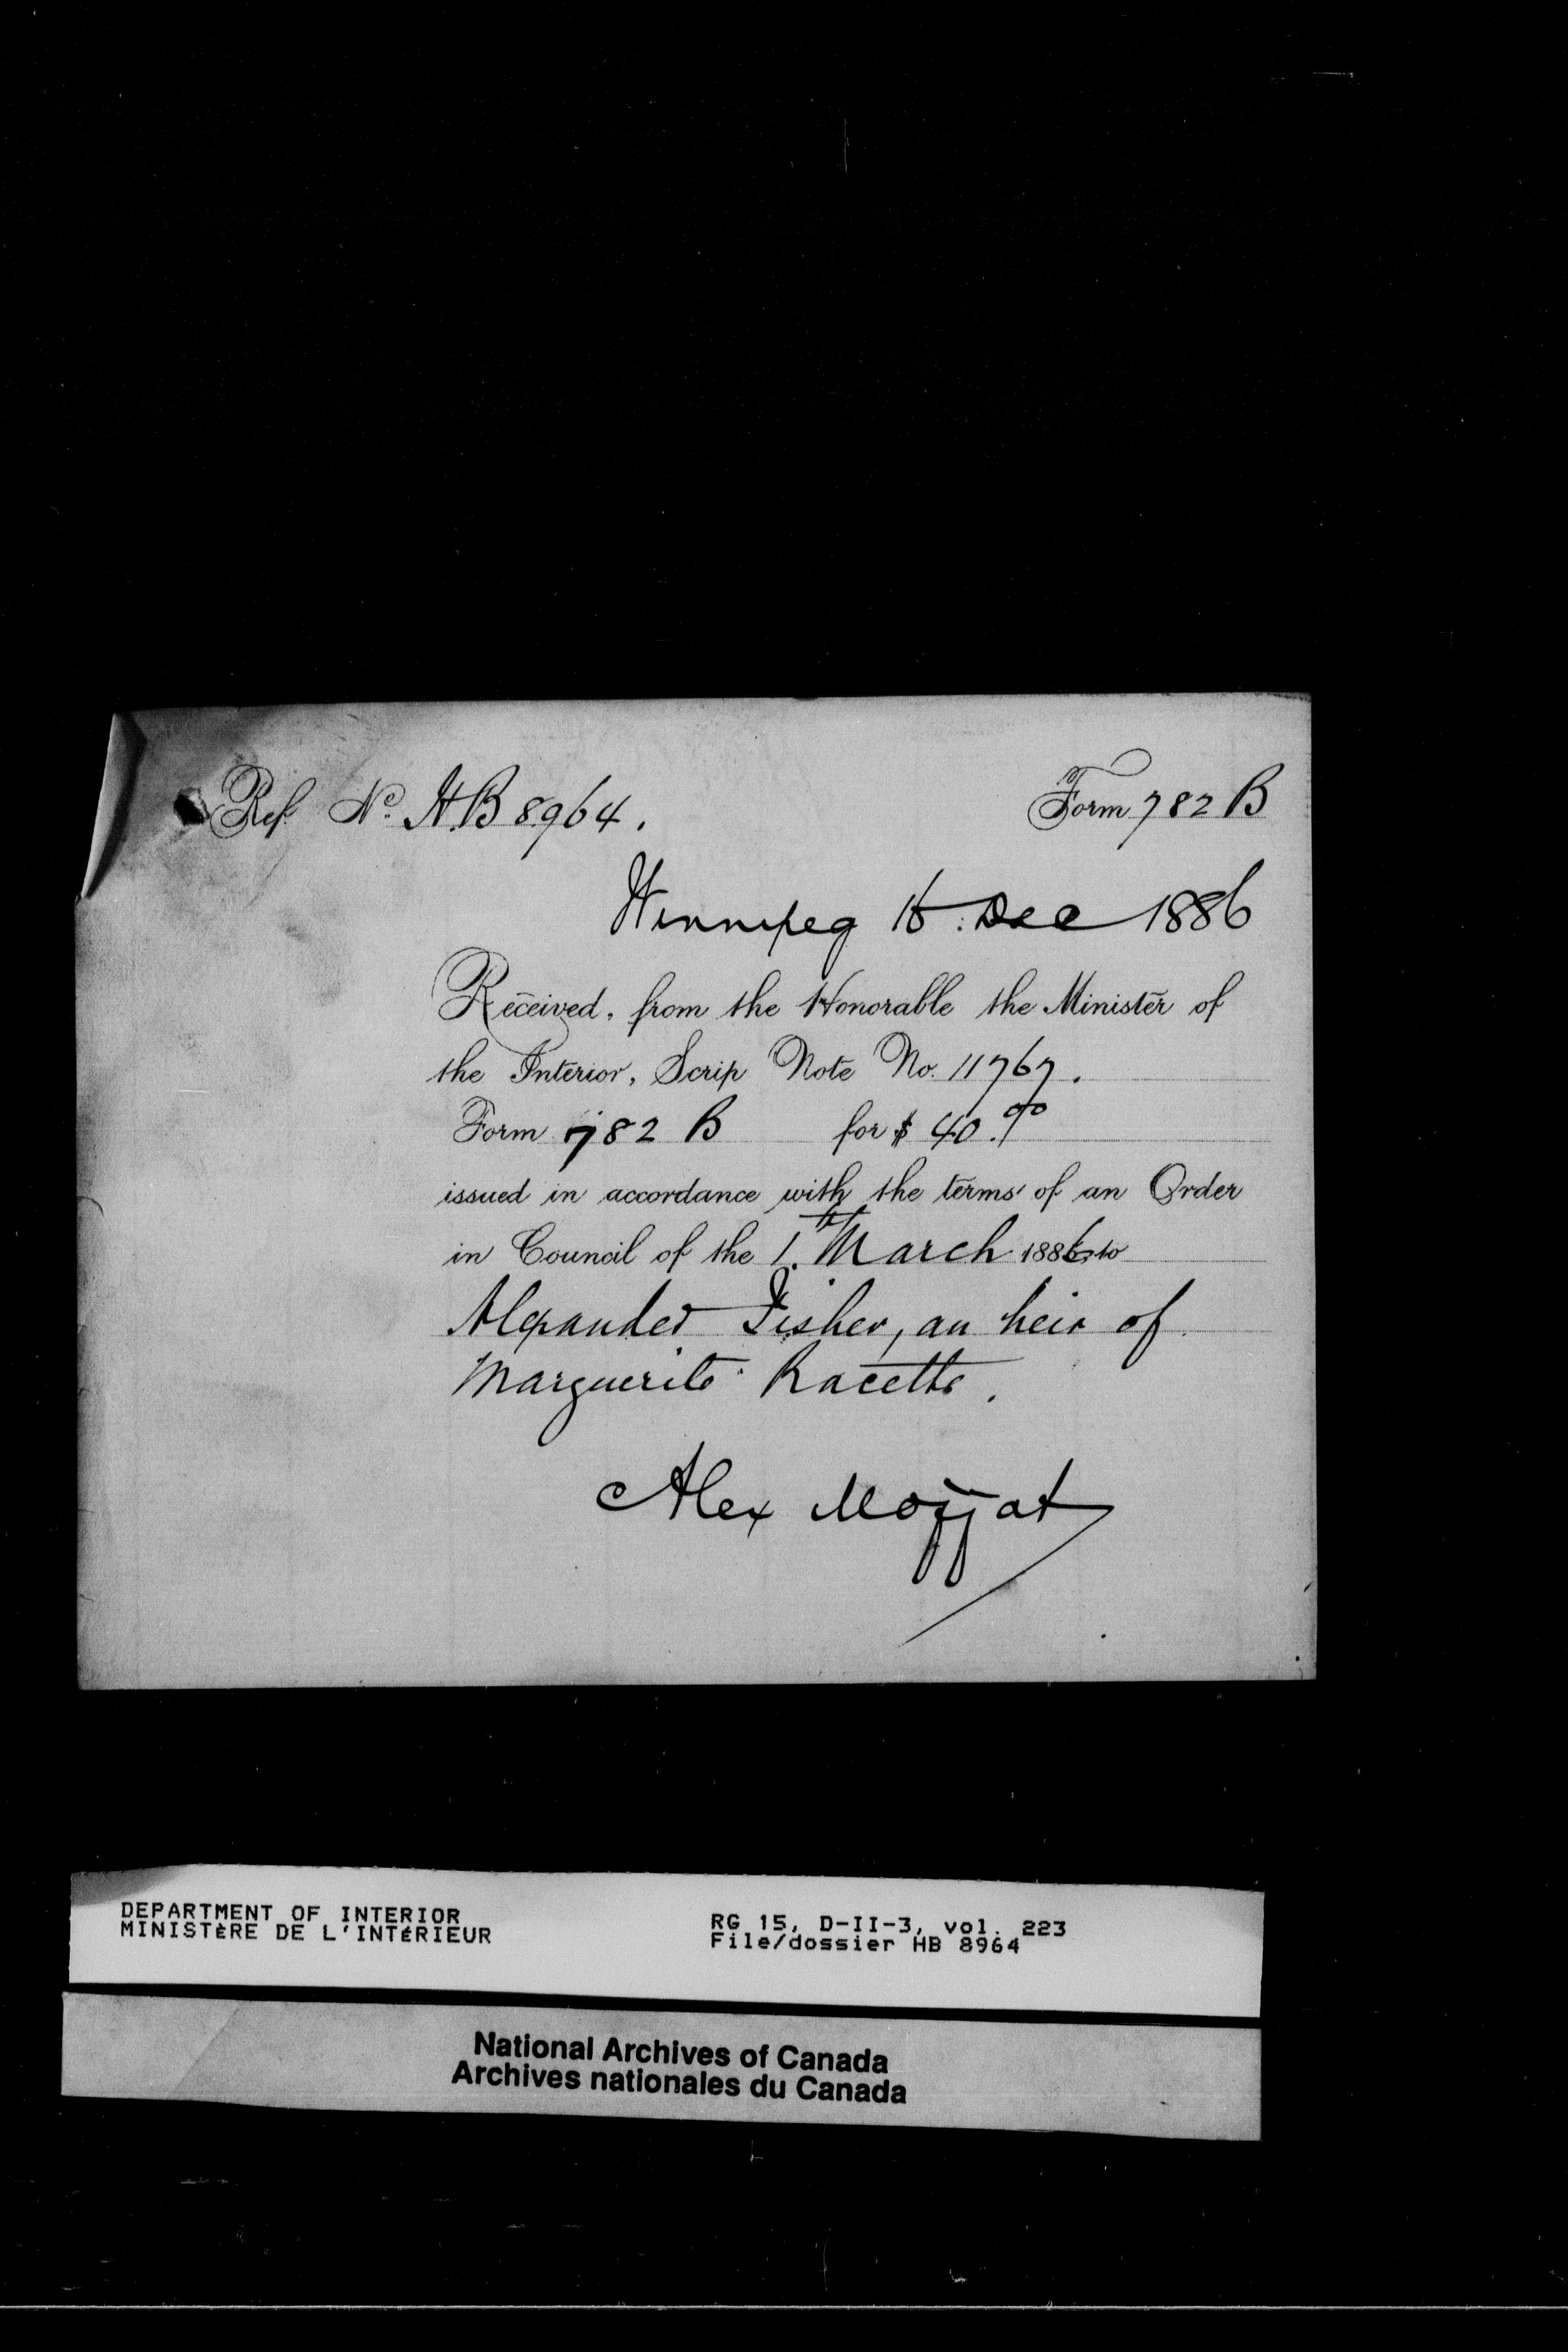 Ref. No. H.B 8964.
Form 782 B
Winnipeg Dec 1886
Received, from the Honorable the Minister of
the Interior, Scrip Note No. 11767.
Form 782 B for $ 40.00
issued in accordance with the terms of an Order
in Council of the 1.st March 1886 to
Alexander Fisher, an heir of
Marguerite Racette.
Alex Moffat
DEPARTMENT OF INTERIOR
MINISTÈRE DE L'INTÉRIEUR
RG 15, D-II-3, vol. 223
File/dossier HB 8964
National Archives of Canada
Archives nationales du Canada